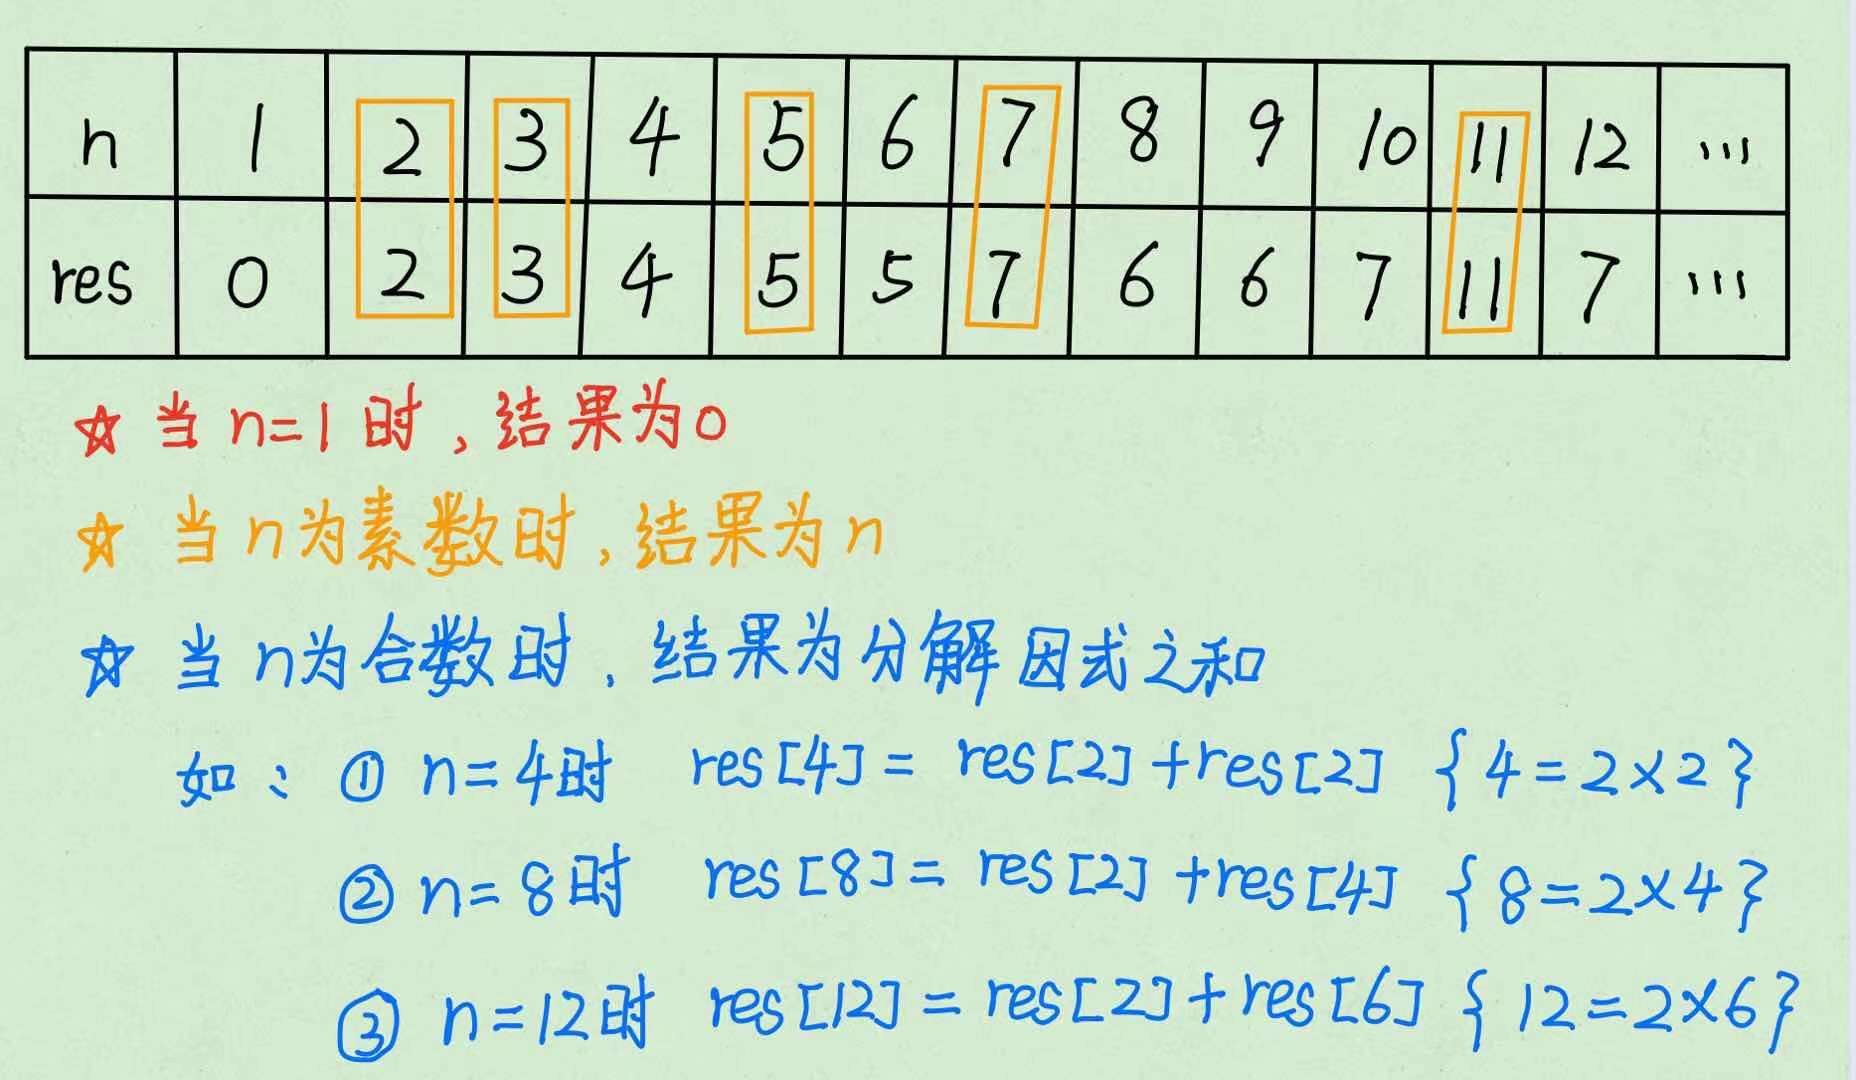 n 1 2 3 4 5 6 7 8 9 10 11 12 ...
res 0 2 3 4 5 5 7 6 6 7 11 7 ...
☆ 当n=1时,结果为0
☆ 当n为素数时,结果为n
☆ 当n为合数时,结果为分解因式之和
如：① n=4时 res[4] = res[2]+res[2] {4=2×2}
② n=8时 res[8]= res[2]+res[4] {8=2×4}
③ n=12时 res[12] = res[2]+res[6] {12=2×6}